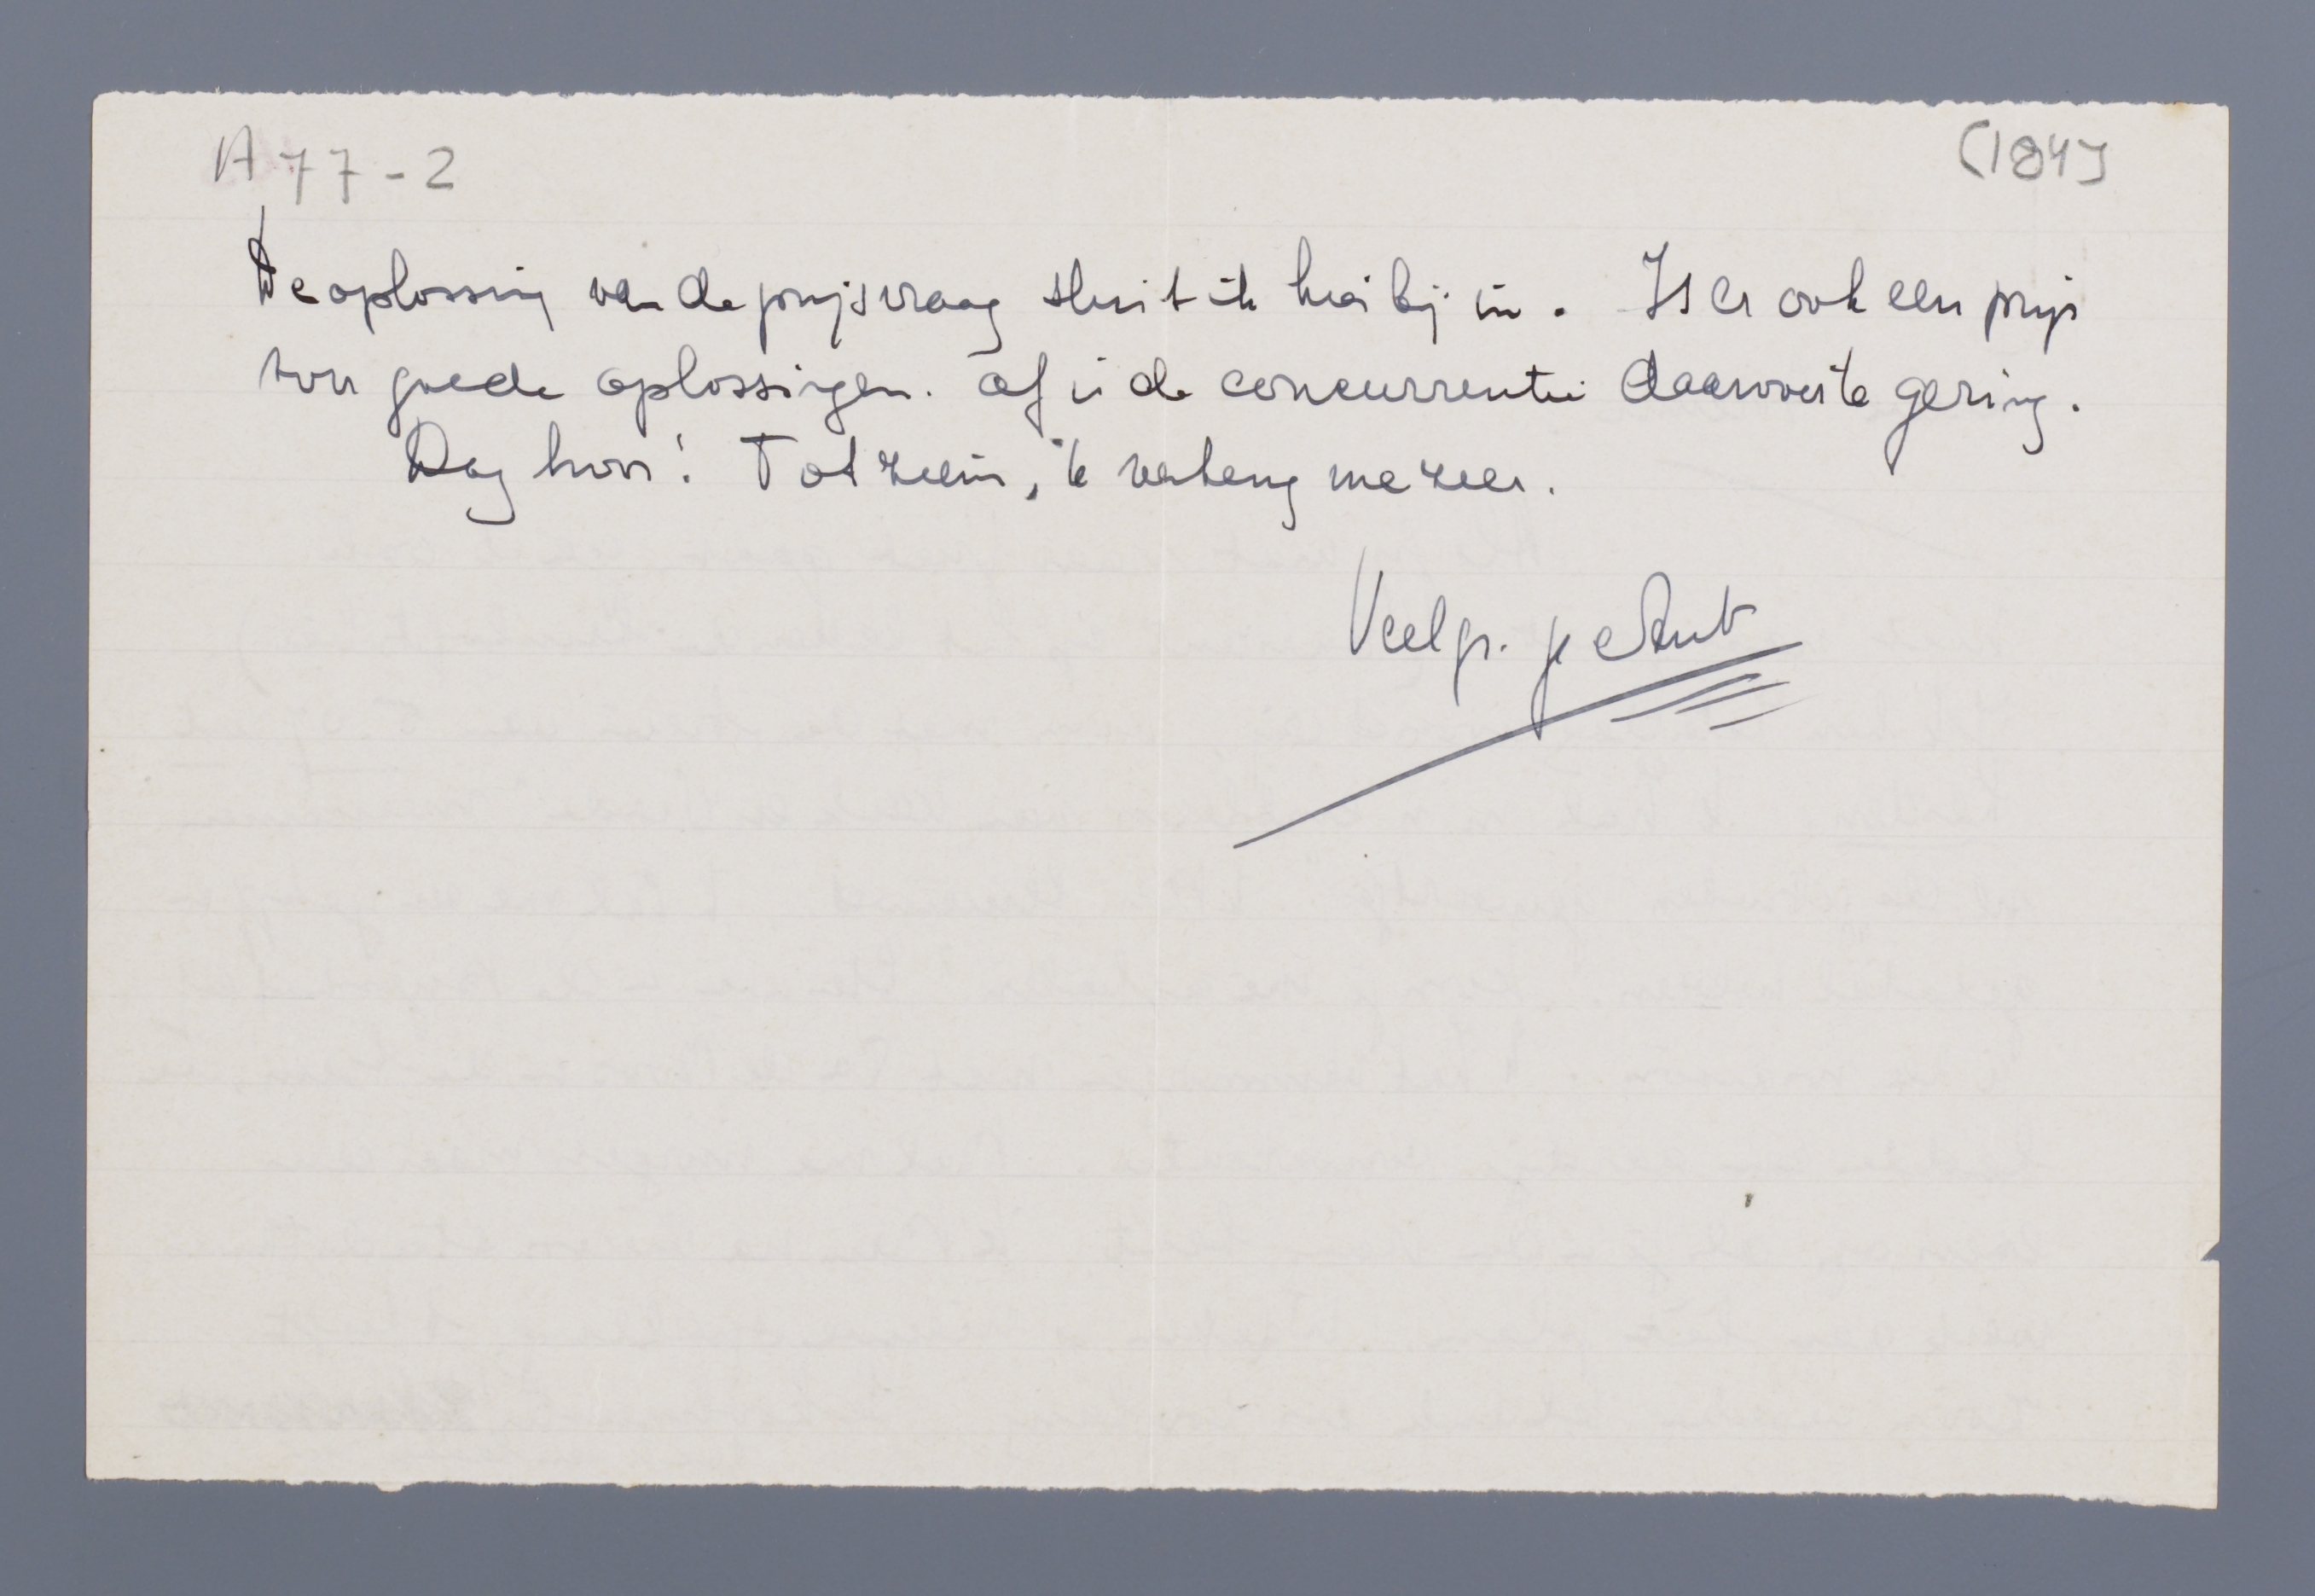 A77-2
(184)
De oplossing van de prijsvraag sluit ik hierbij in. Is er ook een prijs
voor goede oplossingen. Of is de concurrentie daarvoor te gering.
Dag hoor! Tot ziens, 'k verlang me zeer.
Veel gr. je